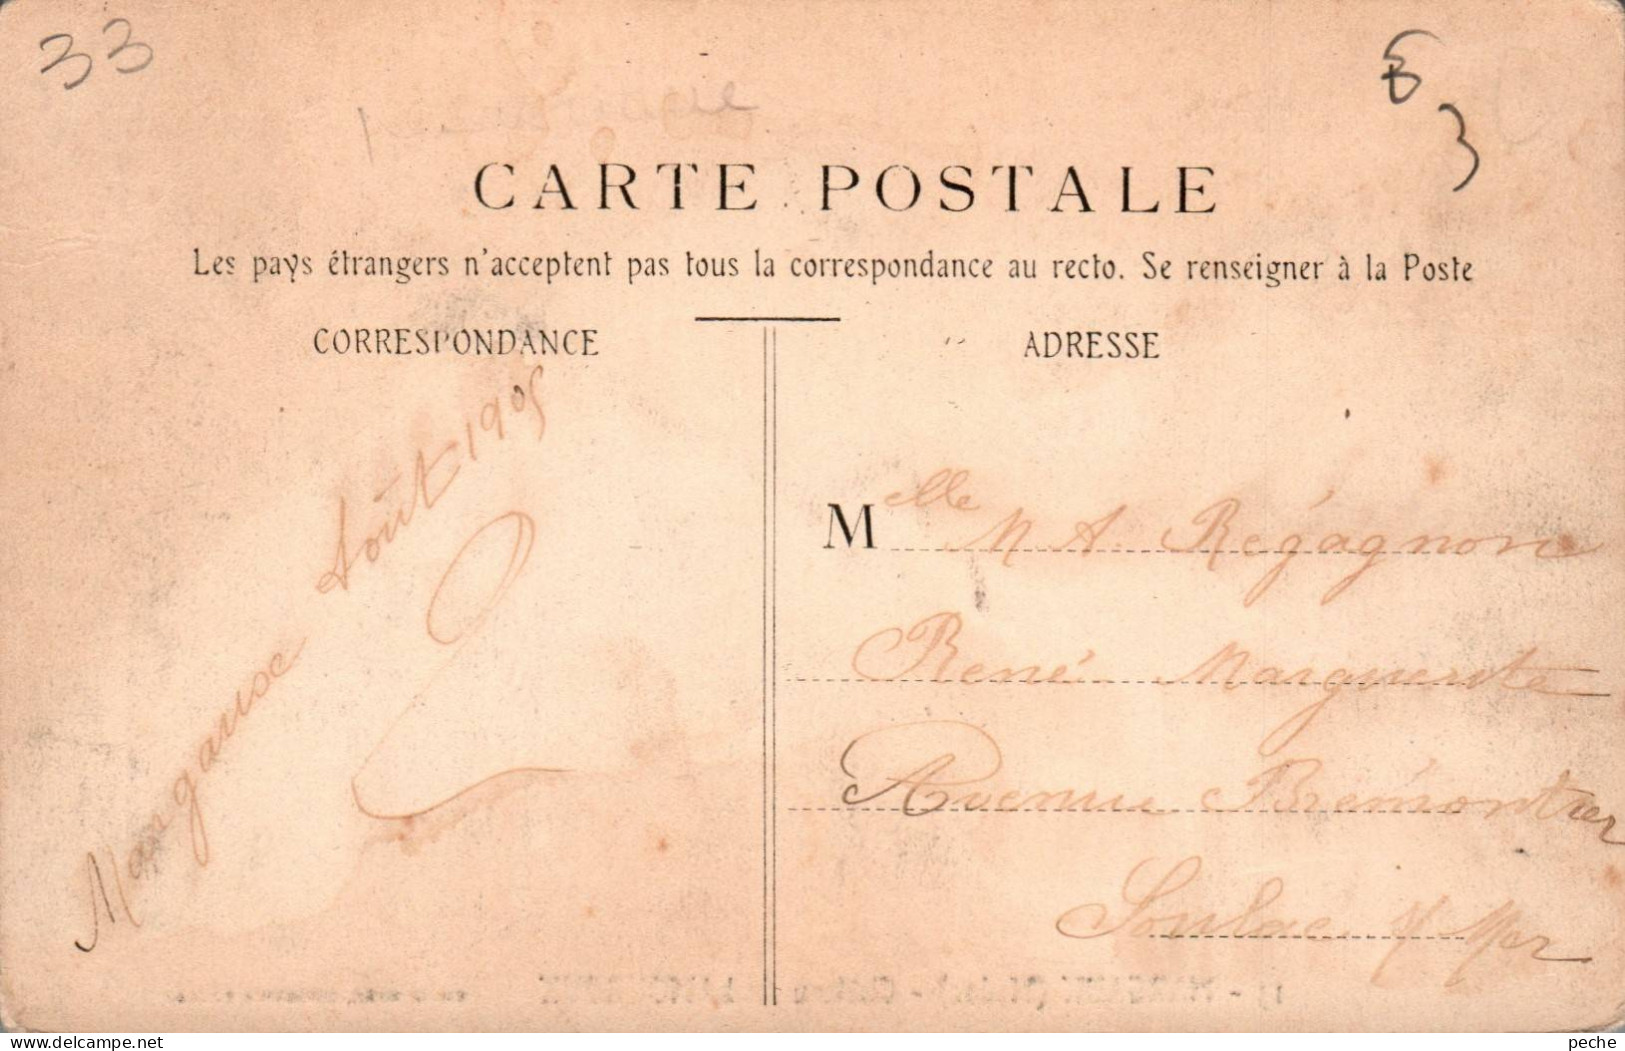 33
3
CARTE POSTALE
Les pays étrangers n'acceptent pas tous la correspondance au recto. Se renseigner à la Poste
CORRESPONDANCE
ADRESSE
Août 1905
Melle M A Régagnon
René Marguerite
Avenue Brémontier
Soulac s/ Mer
delcampe.net
peche